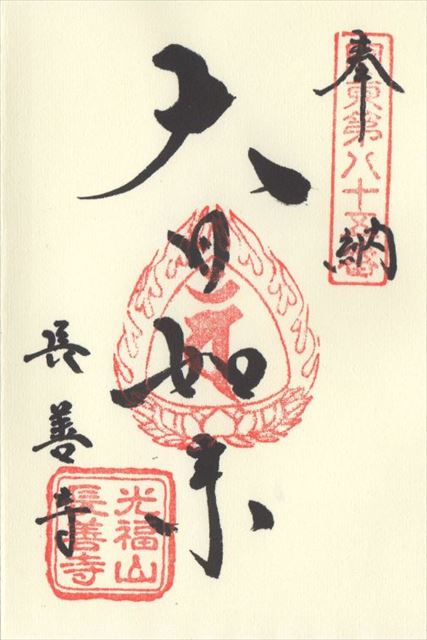 奉納
関東第八十五番
大日如来
長善寺
光福山
長善寺